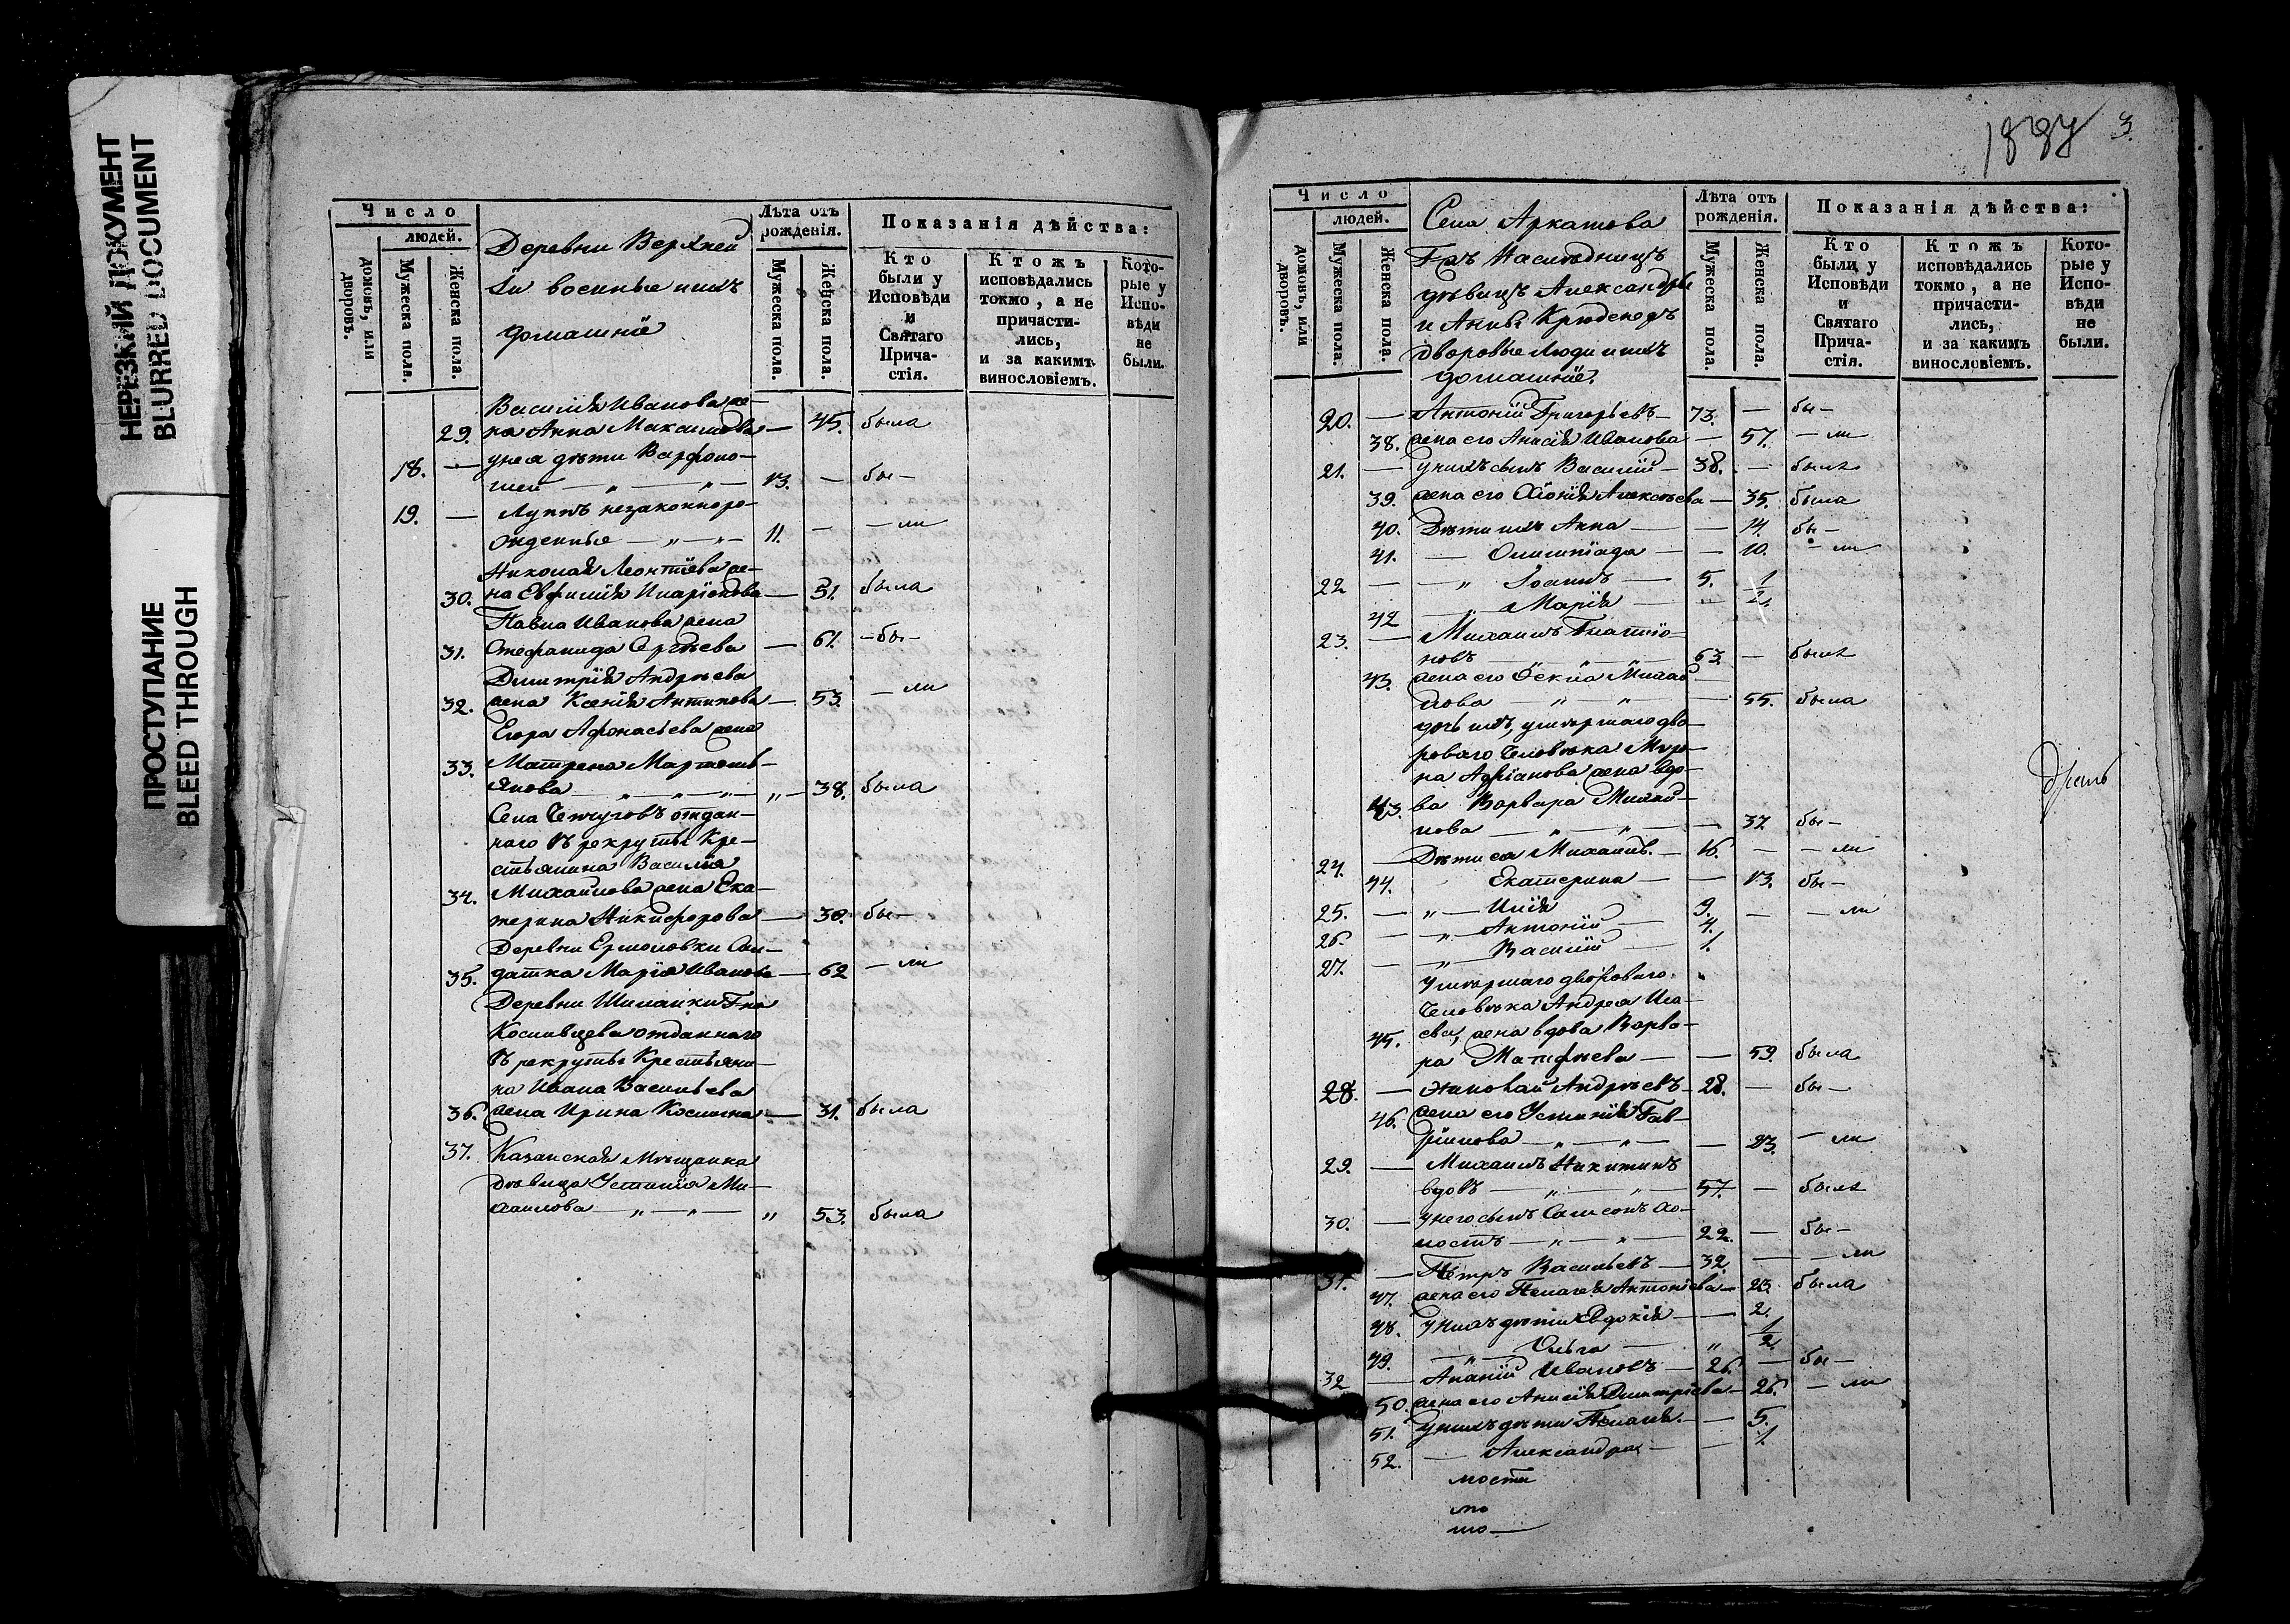 НЕРЕЗКИЙ ДОКУМЕНТ
BLURRED DOCUMENT
ПРОСТУПАНИЕ
BLEED THROUGH
Число
людей.
домовъ, или дворовъ.
Мужеска пола.
Женска пола.
Деревни Верхней
военные ихъ
домашніе
Лѣта отъ рожденія.
Мужеска пола.
Женска пола.
Показанія дѣйства:
Кто были у Исповѣди и Святаго Причастія.
Ктожъ исповѣдались токмо, а не причастились, и за какимъ винословіемъ.
Которые у Исповѣди не были.
Василія Иванова же-
29. на Анна Максимова — 45. была
18. — у нея дѣти Варфоло-
мей — „ — „ — 13. — бы —
19. — Луппъ незаконноро-
жденные — „ — „ — 11. — — ли
Николая Леонтіева же-
30. на Евфимія Иларіонова — 51. была
Павла Иванова жена
31. Стефанида Сергѣева — 61. — бы —
Димитрія Андреева
32. жена Ксенія Антипова — 53. — ли
Егора Афонасьева жена
33. Матрена Мартемь-
янова — „ — „ — „ — 38. была
Села отдан-
наго въ рекруты Кре-
стьянина Василія
34. Михайлова жена Ека-
терина Никифорова — 30. бы —
Деревни Ермоловки Сол-
35. датка Марія Иванова — 62 — ли
Деревни Шиланки Гна
отданнаго
въ рекруты Крестьяни-
на Ивана Васильева
36. жена Ирина Космина — 31. была
37. Казанская Мѣщанка
дѣвица Устинія Ми-
хаилова — „ — „ — „ 53. была
1887 3.
Число
людей.
домовъ, или дворовъ.
Мужеска пола.
Женска пола.
Села Аркатова
Гжъ Наслѣдницъ
дѣвицъ Александры
и Анны
дворовые люди и ихъ
домашніе.
Лѣта отъ рожденія.
Мужеска пола.
Женска пола.
Показанія дѣйства:
Кто были у Исповѣди и Святаго Причастія.
Ктожъ исповѣдались токмо, а не причастились, и за какимъ винословіемъ.
Которые у Исповѣди не были.
20. — Антоній Григорьевъ — 73. — бы —
38. жена его Анисія Иванова — 57. — ли
21. — у нихъ сынъ Василій — 38. — былъ
39. жена его Хіонія Алексѣева — 35. была
40. Дѣти ихъ Анна — — 14. бы —
41. — Олимпіада — — 10. — ли
22 — — „ Іоаннъ — 5.
42 — „ Марія — „ 1/2
23. — Михаилъ
новъ — „ — „ — 63. — былъ
43. жена его Ѳекла Михай-
лова — „ — „ — 55. была
дочь ихъ, умершаго дво-
роваго человѣка Миро-
на Адріанова жена вдо-
43. ва Варвара Михай-
лова — „ — „ — 37. бы —
24. — Дѣти ея Михаилъ. — 16. — — ли
44. Екатерина — — 13. бы —
25. — „ — Илія 9. — — ли
26. — „ — Антоній — 4.
27. — „ — Василій — 1.
Умершаго двороваго
человѣка Андрея Иса-
45. ева, жена вдова Варва-
ра Матфеева — — 59. была
28. — Андреевъ — 28. — бы —
46. жена его Устинія Гав-
риілова — „ — „ — 23. — ли
29. — Михаилъ Никитинъ
вдовъ — „ — „ — 57. — былъ
30. — у него сынъ Самсонъ хо-
лостъ — „ — „ — 22. — бы —
31. — Петръ Васильевъ — 32. — — ли
47. жена его Пелагея Антоніева — 23. была
48. у нихъ дѣти Евдокія — — 2.
49. — „ — Ольга — „ 1/2
32 — Ананій Ивановъ — 26. — бы —
50. жена его Анисія Димитріева — 26. — ли
51. у нихъ дѣти Пелагея. — — 5.
52. — Александра — — 1.